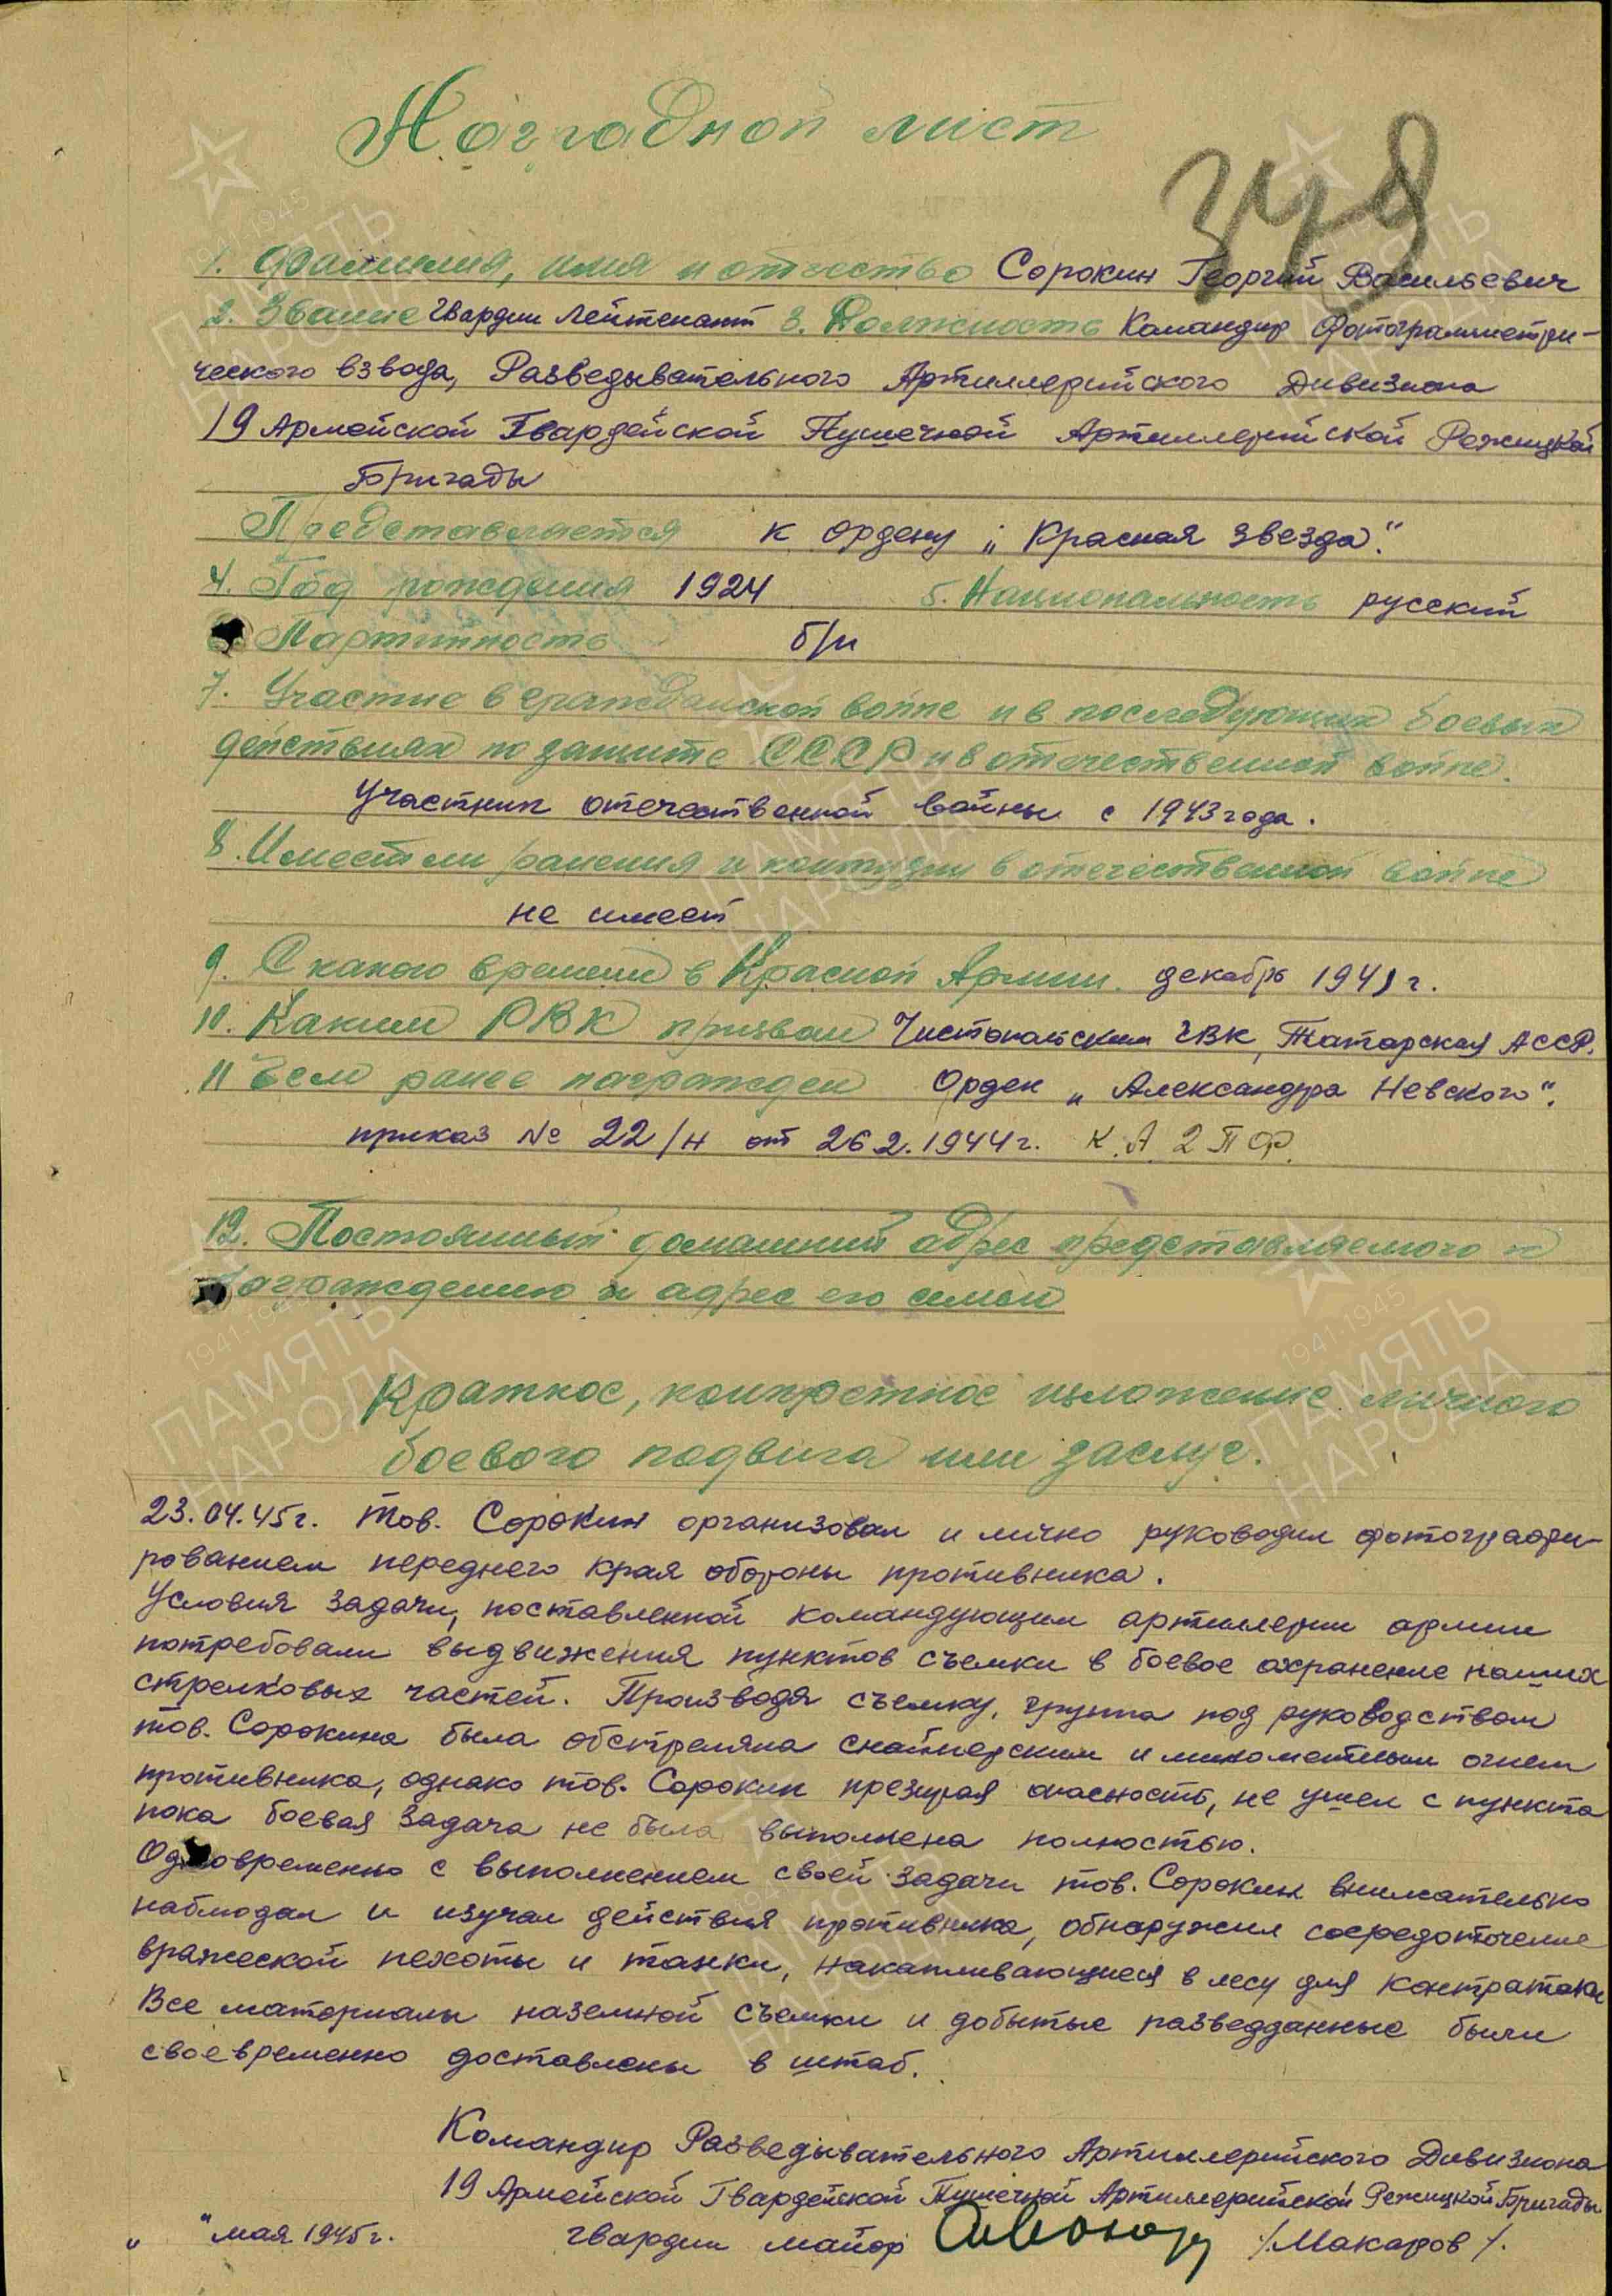 Наградной лист
348
1. Фамилия, имя и отчество Сорокин Георгий Васильевич
2. Звание Гвардии Лейтенант 3. Должность Командир Фотограмметри-
ческого взвода, Разведывательного Артиллерийского Дивизиона
19 Армейской Гвардейской Пушечной Артиллерийской Режицкой
Бригады
Представляется к ордену „Красная Звезда".
4. Год рождения 1924 5. Национальность русский
Партийность б/п
7. Участие в гражданской войне и в последующих боевых
действиях по защите СССР и в отечественной войне.
Участник отечественной войны с 1943 года.
8. Имеет ли ранения и контузии в отечественной войне
не имеет
9. С какого времени в Красной Армии. декабрь 1941 г.
10. Каким РВК призван Чистопольским ГВК, Татарская АССР.
11 Чем ранее награжден Орден „Александра Невского".
приказ № 22/н от 26.2.1944 г. К.А. 2 ПФ.
12. Постоянный домашний адрес представляемого к
награждению и адрес его семьи
Краткое, конкретное изложение личного
боевого подвига или заслуг.
23.04.45г. Тов. Сорокин организовал и лично руководил фотографи-
рованием переднего края обороны противника.
Условия задачи, поставленной командующим артиллерии армии
потребовали выдвижения пунктов съемки в боевое охранение наших
стрелковых частей. Производя съемку, группа под руководством
тов. Сорокина была обстреляна снайперским и минометным огнем
противника, однако тов. Сорокин презирая опасность, не ушел с пункта
пока боевая задача не была выполнена полностью.
Одновременно с выполнением своей задачи тов. Сорокин внимательно
наблюдал и изучал действия противника, обнаружил сосредоточение
вражеской пехоты и танки, накапливающиеся в лесу для контратаки
Все материалы наземной съемки и добытые разведданные были
своевременно доставлены в штаб.
Командир Разведывательного Артиллерийского Дивизиона
19 Армейской Гвардейской Пушечной Артиллерийской Режицкой Бригады
„ " мая 1945 г. гвардии майор /Макаров/.
1941-1945
ПАМЯТЬ
НАРОДА